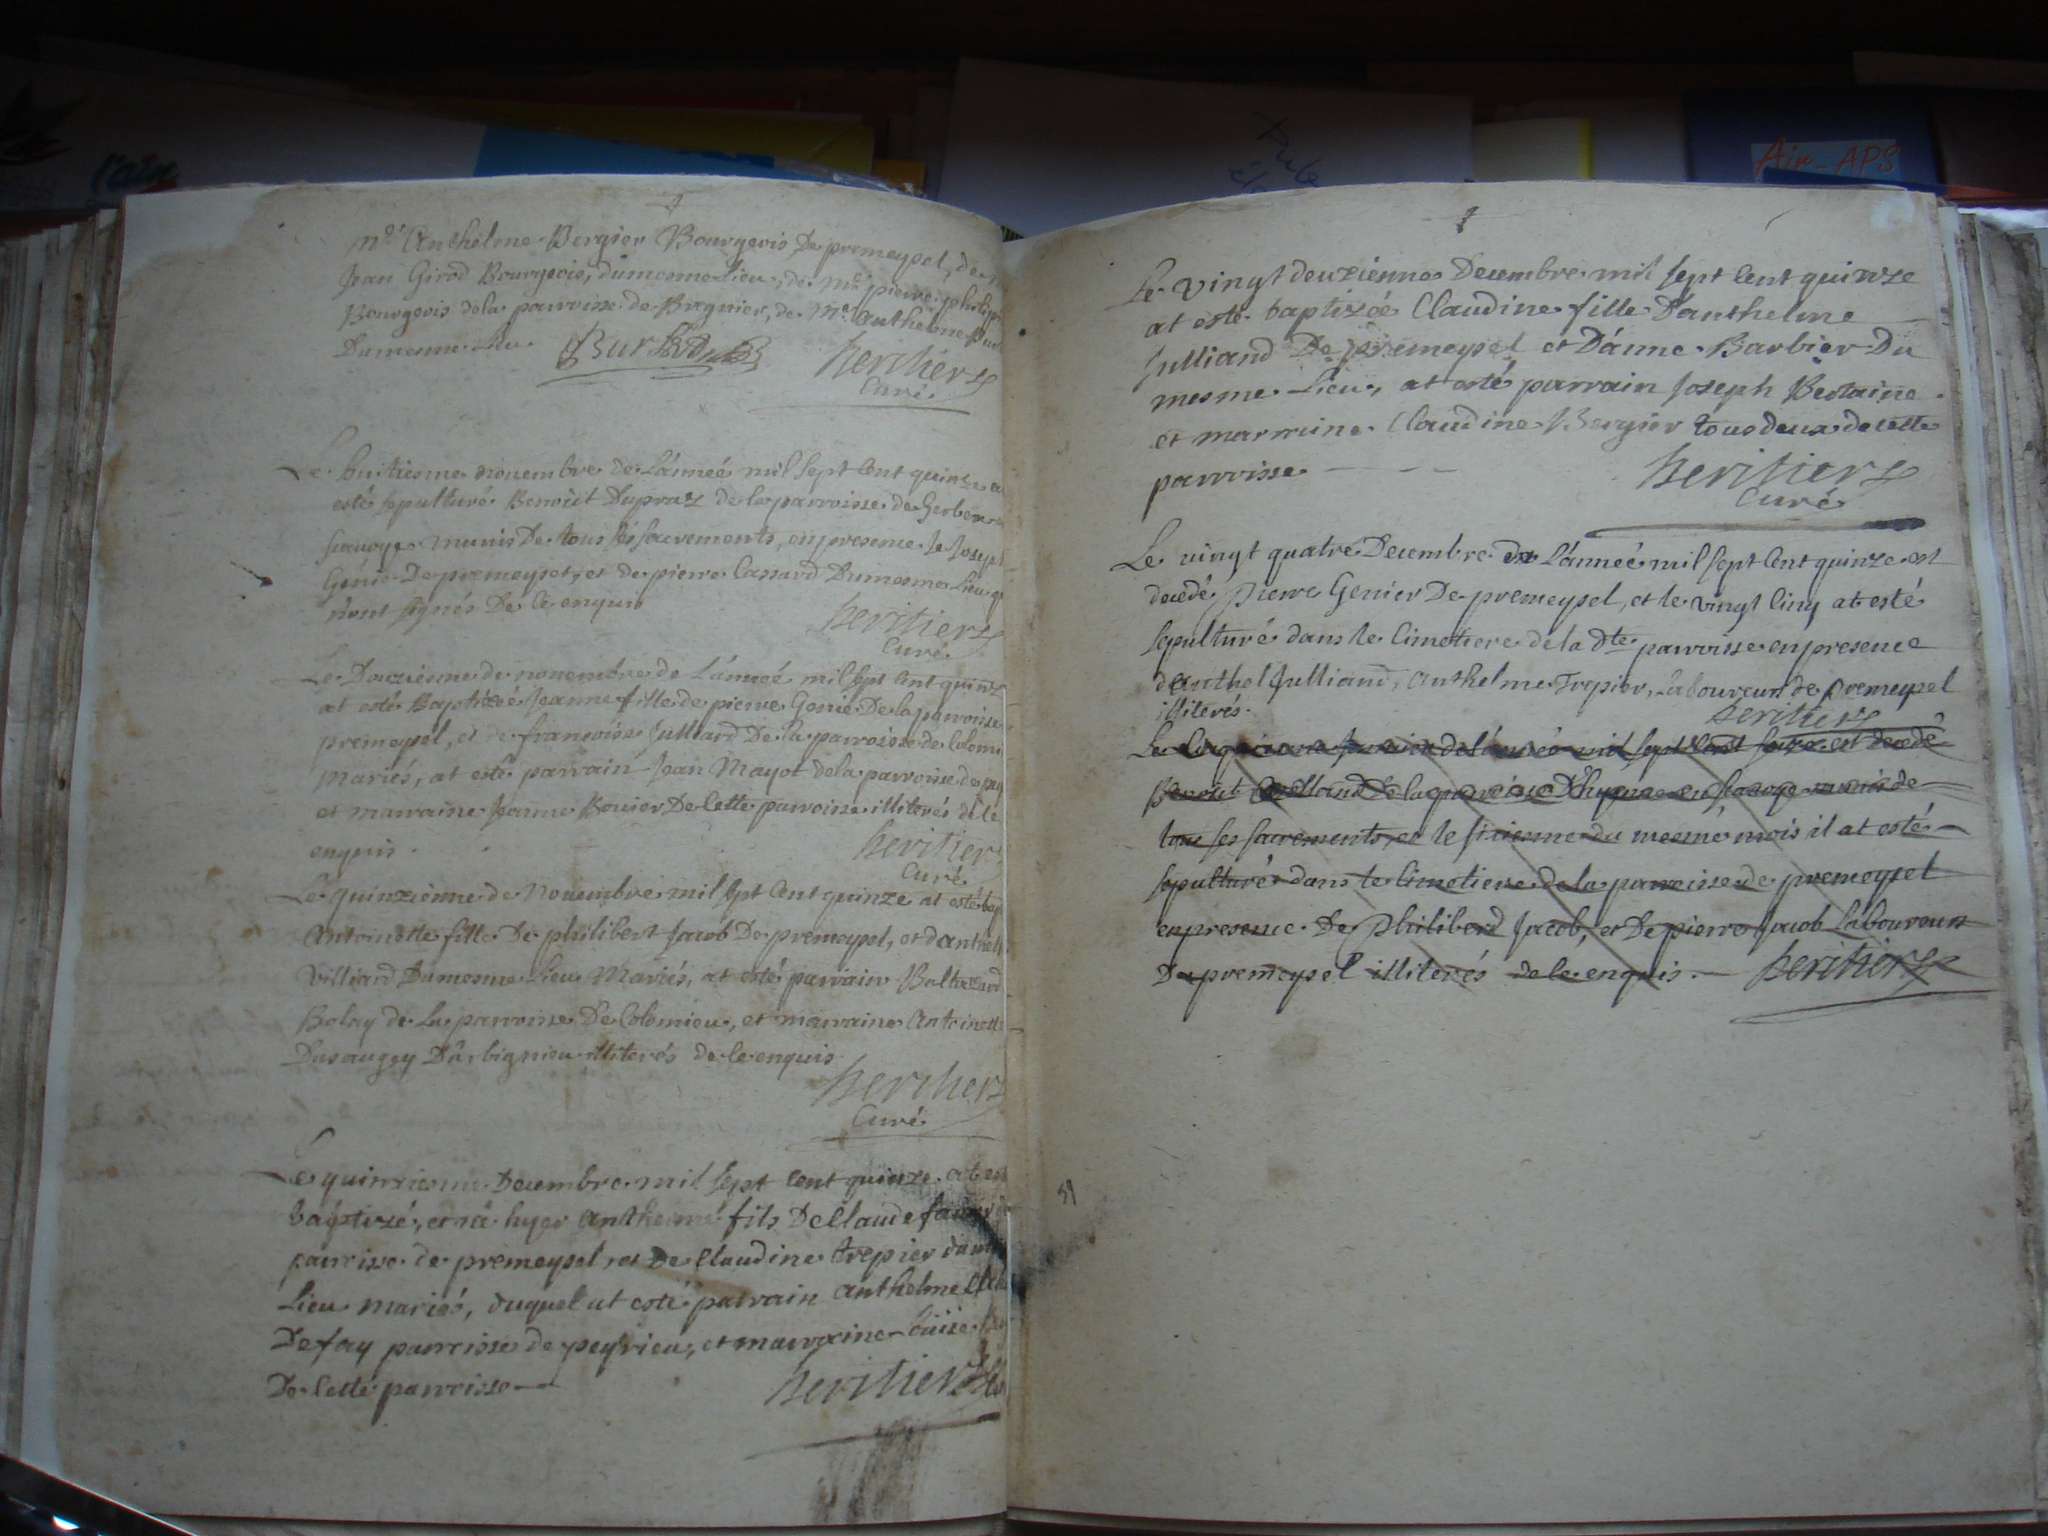 l'ain
Ain-APS
Mre Anthelme Bergier Bourgeois De premeysel, de
Jean Girod Bourgeois, du mesme Lieu, de Mre pierre philip
Bourgeois de la parroisse de Bregnier, de Me Anthelme
Du mesme Lieu
heritier
Curé
Le huitiesme nouembre de L'année mil sept Cent quinze a
esté sepulturé Benoit Dupraz de la parroisse de Gerbe
sauoye munis De tous ses sacrements, en presence de Joseph
Génie De premeysel, et de pierre Cassard Du mesme Lieu q
n'ont signés De Ce enquis
heritier
Curé
Le Douzieme de nouembre de L'année mil sept Cent quinze
at esté Baptizeé Jeanne fille de pierre Genie De la parroisse
premeysel, et de francoise Julliard De la parroisse de Colomi
mariés, at esté parrain Jean Mayot de la parroisse de
et marraine Jeanne Bouier De Cette parroisse illiterés de Ce
enquis.
heritier
Curé
Le quinzieme de Nouembre mil sept Cent quinze at esté bap
Antoinette fille De philibert Jacob De premeysel, et d'anthel
Villiard Du mesme Lieu Mariés, at esté parrain Baltazard
Bolay de La parroisse De Colomieu, et marraine Antoinette
Dusaugey D'arbignieu illiterés de Ce enquis
heritier
Curé
Le quinziesme Decembre mil sept Cent quinze at es
baptizé, et né hyer Anthelme fils De Claude
parroisse de premeysel, et De Claudine trepier du m
Lieu mariés, duquel at esté parrain Anthelme
De fay parroisse de peyrieu, et marraine
De Cette parroisse
heritier
Le vingt deuzieme Decembre mil sept Cent quinze
at esté baptizéé Claudine fille D'anthelme
Julliand De premeysel et D'anne Barbier Du
mesme Lieu, at esté parrain Joseph Bertaine
et marraine Claudine Bergier tous deux de Cette
parroisse
heritier
Curé
Le vingt quatre Decembre de L'anneé mil sept Cent quinze est
decedé pierre Genier De premeysel, et le vingt Cinq at esté
sepulturé dans le Cimetiere de la Dte parroisse en presence
d'Anthel Julliand, Anthelme Trepier, Laboureurs de premeysel
illiterés.
heritier
Le Janvier de L'anneé mil sept Cent seize est decedé
Benoit De la parroisse sauoye munis de
tous ses sacrements, et le du mesme mois il at esté
sepulturé dans le Cimetiere de la parroisse de premeysel
en presence De Philiberd Jacob, et De pierre Jacob Laboureurs
De premeysel illiterés de Ce enquis.
heritier